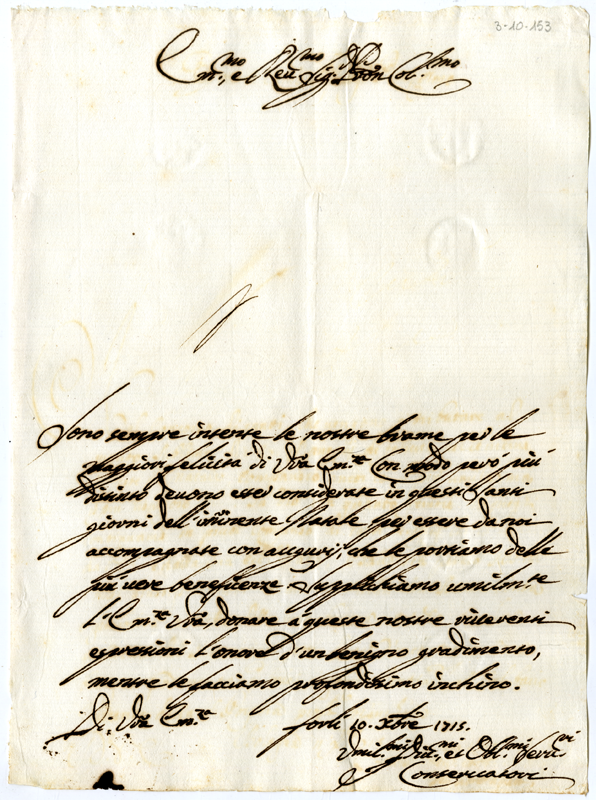 3-10-153
Em.mo, e Reu.mo Sig.r P'ron Col.mo
Sono sempre intente le nostre brame per le
maggiori felicità di Vrã Em.za Con modo però più
distinto deuono esser considerate in questi Santi
giorni dell'iminente Natale per essere da noi
accompagnate con auguri, che le portiamo delle
più uere beneficenze. Supplichiamo umilm.te
l'Em.za Vrã, donare à queste nostre riuerenti
espressioni l'onore d'un benigno gradimento,
mentre le facciamo profondissimo inchino.
Di Vrã Em.za forlì 10. Xbre 1715.
Vmil.mi Diu.mi, et Obl.mi Seru.ri
Conseruatori